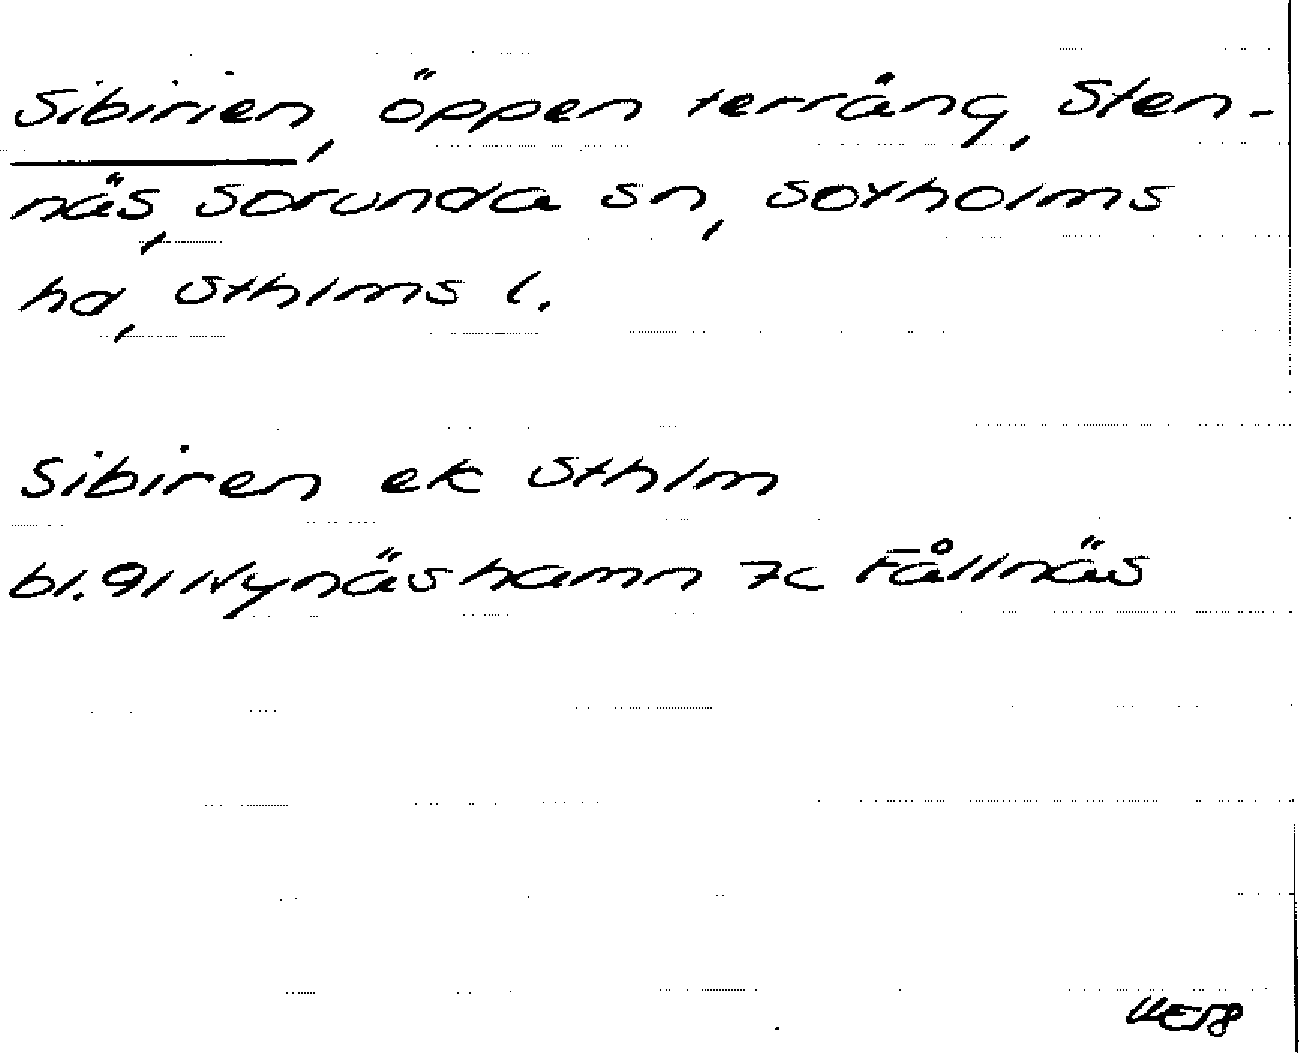 Sibirien, öppen terräng, Sten-
näs, Sorunda sn, Sotholms
hd, Sthlms l.
Sibiren ek Sthlm
bl. 91 Nynäshamn 7c Fållnäs